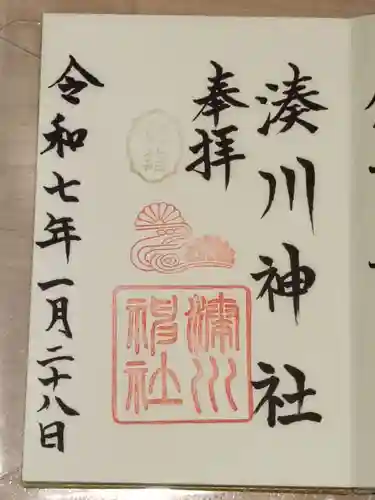 湊川神社
奉拝
初詣
湊川神社
令和七年一月二十八日